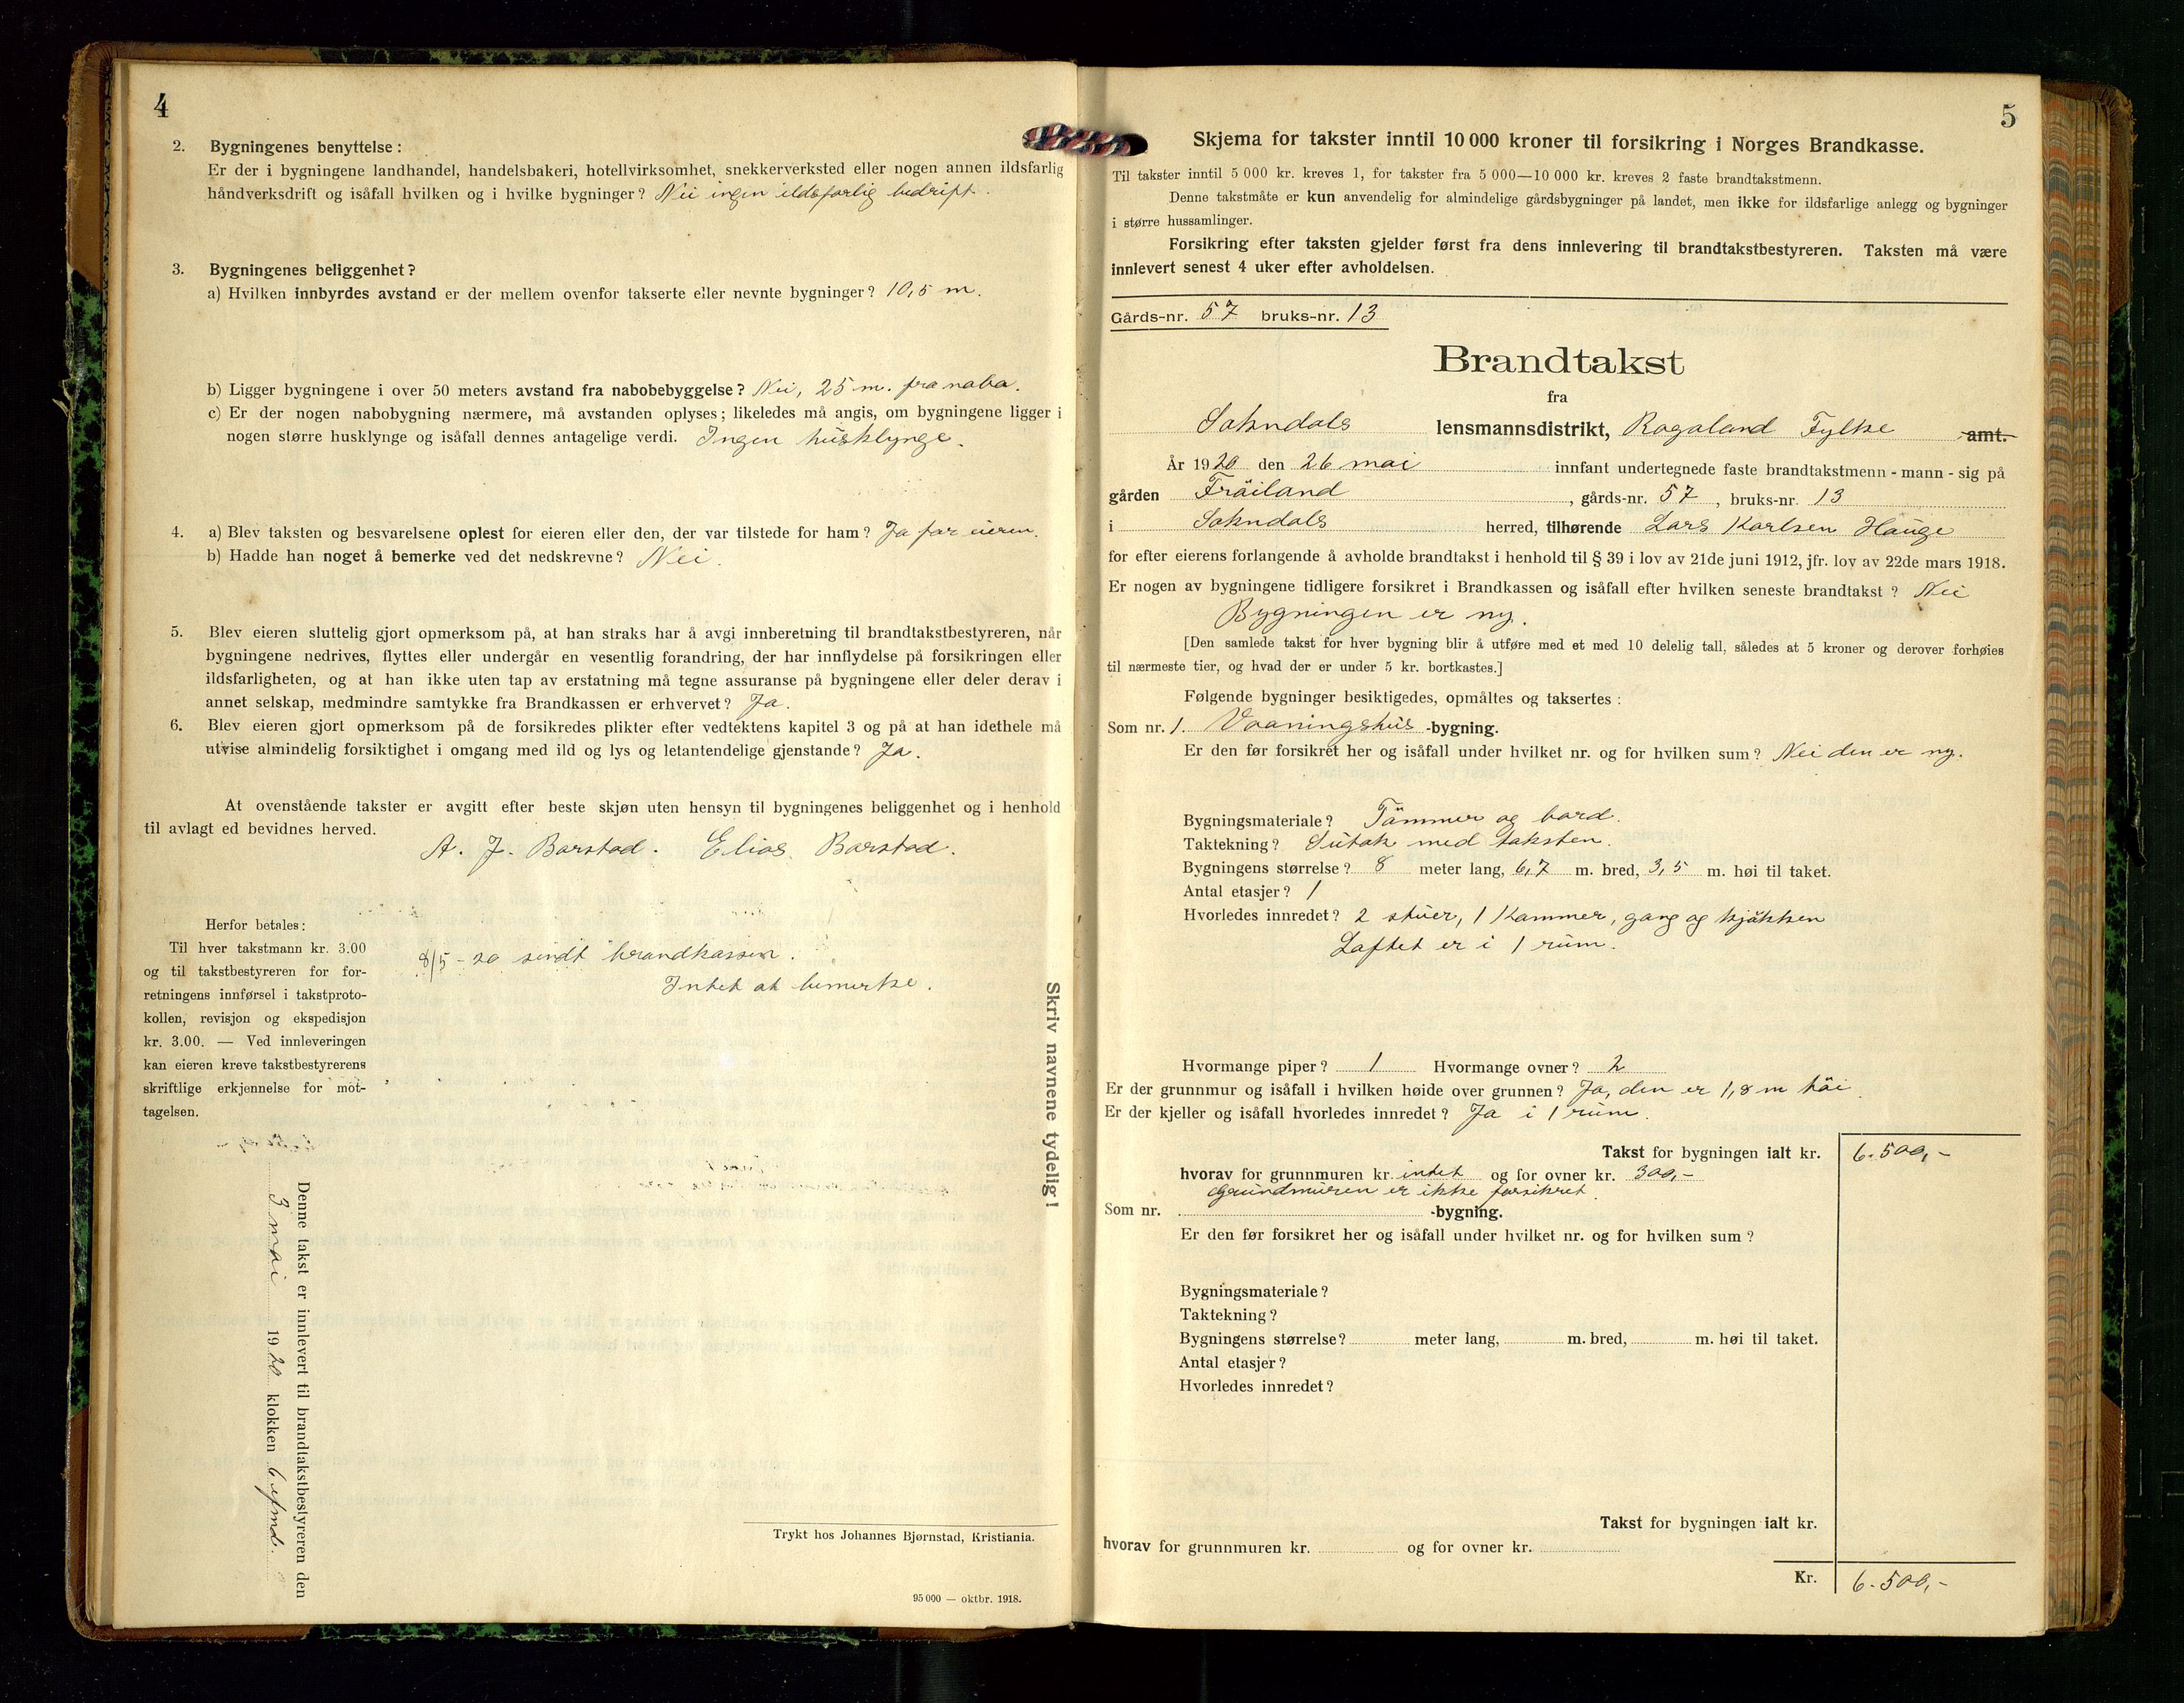 4
2. Bygningenes benyttelse:
Er der i bygningene landhandel, handelsbakeri, hotellvirksomhet, snekkerverksted eller nogen annen ildsfarlig
håndverksdrift og isåfall hvilken og i hvilke bygninger? Nei ingen ildsfarlig bedrift.
3. Bygningenes beliggenhet?
a) Hvilken innbyrdes avstand er der mellem ovenfor takserte eller nevnte bygninger? 10,5 m.
b) Ligger bygningene i over 50 meters avstand fra nabobebyggelse? Nei, 25 m. fra nabo.
c) Er der nogen nabobygning nærmere, må avstanden oplyses; likeledes må angis, om bygningene ligger i
nogen større husklynge og isåfall dennes antagelige verdi. Ingen husklynge.
4. a) Blev taksten og besvarelsene oplest for eieren eller den, der var tilstede for ham? Ja for eieren.
b) Hadde han noget å bemerke ved det nedskrevne? Nei.
5. Blev eieren sluttelig gjort opmerksom på, at han straks har å avgi innberetning til brandtakstbestyreren, når
bygningene nedrives, flyttes eller undergår en vesentlig forandring, der har innflydelse på forsikringen eller
ildsfarligheten, og at han ikke uten tap av erstatning må tegne assuranse på bygningene eller deler derav i
annet selskap, medmindre samtykke fra Brandkassen er erhvervet? Ja.
6. Blev eieren gjort opmerksom på de forsikredes plikter efter vedtektens kapitel 3 og på at han idethele må
utvise almindelig forsiktighet i omgang med ild og lys og letantendelige gjenstande? Ja.
At ovenstående takster er avgitt efter beste skjøn uten hensyn til bygningenes beliggenhet og i henhold
til avlagt ed bevidnes herved.
A. J. Barstad. Elias Barstad.
Herfor betales:
Til hver takstmann kr. 3.00
og til takstbestyreren for for-
retningens innførsel i takstproto-
kollen, revisjon og ekspedisjon
kr. 3.00. — Ved innleveringen
kan eieren kreve takstbestyrerens
skriftlige erkjennelse for mot-
tagelsen.
8/5 - 20 sendt brandkassen.
Intet at bemerke.
Skriv navnene tydelig!
Denne takst er innlevert til brandtakstbestyreren den
3 mai 1920 klokken 6 efmd.
Trykt hos Johannes Bjørnstad, Kristiania.
95 000 — oktbr. 1918.
5
Skjema for takster inntil 10 000 kroner til forsikring i Norges Brandkasse.
Til takster inntil 5 000 kr. kreves 1, for takster fra 5 000—10 000 kr. kreves 2 faste brandtakstmenn.
Denne takstmåte er kun anvendelig for almindelige gårdsbygninger på landet, men ikke for ildsfarlige anlegg og bygninger
i større hussamlinger.
Forsikring efter taksten gjelder først fra dens innlevering til brandtakstbestyreren. Taksten må være
innlevert senest 4 uker efter avholdelsen.
Gårds-nr. 57 bruks-nr. 13
Brandtakst
fra
Sokndals lensmannsdistrikt, Rogaland Fylke amt.
År 1920 den 26 mai innfant undertegnede faste brandtakstmenn - mann - sig på
gården Fröiland, gårds-nr. 57, bruks-nr. 13
i Sokndals herred, tilhørende Lars Karlsen Hauge
for efter eierens forlangende å avholde brandtakst i henhold til § 39 i lov av 21de juni 1912, jfr. lov av 22de mars 1918.
Er nogen av bygningene tidligere forsikret i Brandkassen og isåfall efter hvilken seneste brandtakst? Nei
Bygningen er ny.
[Den samlede takst for hver bygning blir å utføre med et med 10 delelig tall, således at 5 kroner og derover forhøies
til nærmeste tier, og hvad der er under 5 kr. bortkastes.]
Følgende bygninger besiktigedes, opmåltes og taksertes:
Som nr. 1. Vaaningshus -bygning.
Er den før forsikret her og isåfall under hvilket nr. og for hvilken sum? Nei den er ny.
Bygningsmateriale? Tömmer og bord.
Taktekning? Sutak med taksten.
Bygningens størrelse? 8 meter lang, 6,7 m. bred, 3,5 m. høi til taket.
Antal etasjer? 1
Hvorledes innredet? 2 stuer, 1 Kammer, gang og kjökken
Loftet er i 1 rum.
Hvormange piper? 1 Hvormange ovner? 2
Er der grunnmur og isåfall i hvilken høide over grunnen? Ja, den er 1,8 m höi.
Er der kjeller og isåfall hvorledes innredet? Ja i 1 rum.
Takst for bygningen ialt kr. 6.500,-
hvorav for grunnmuren kr. intet og for ovner kr. 300,-
Grundmuren er ikke forsikret.
Som nr. -bygning.
Er den før forsikret her og isåfall under hvilket nr. og for hvilken sum?
Bygningsmateriale?
Taktekning?
Bygningens størrelse? meter lang, m. bred, m. høi til taket.
Antal etasjer?
Hvorledes innredet?
Takst for bygningen ialt kr.
hvorav for grunnmuren kr. og for ovner kr.
Kr. 6.500,-